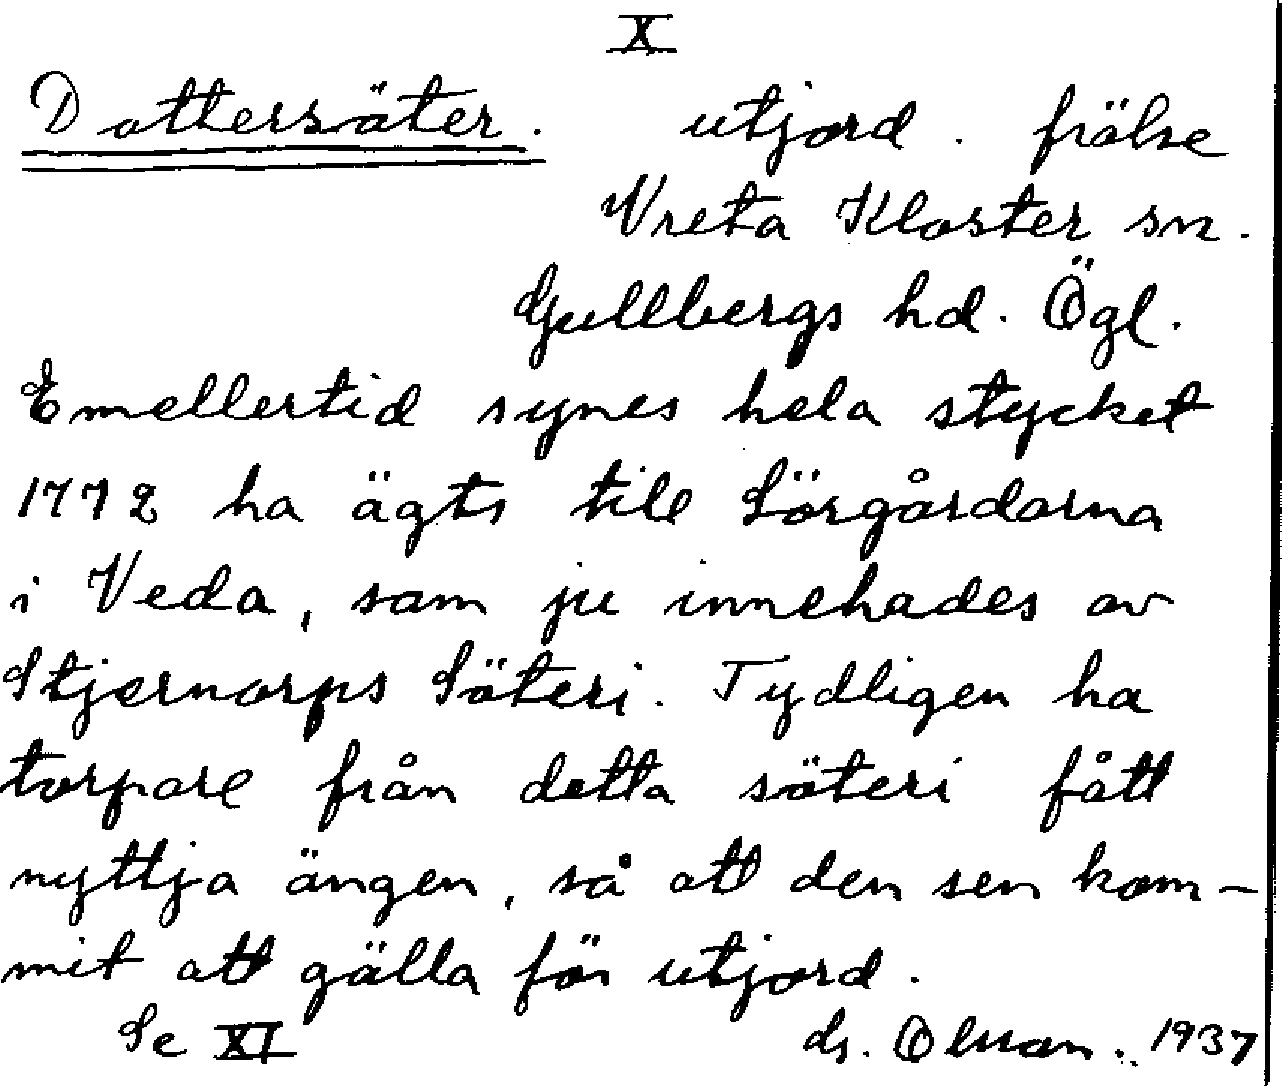 X
Dottersäter. utjord. frälse
Vreta Kloster sn.
Gullbergs hd. Ögl.
Emellertid synes hela stycket
1772 ha ägts till Sörgårdarna
i Veda, som ju innehades av
Stjernorps Säteri. Tydligen ha
torpare från detta säteri fått
nyttja ängen, så att den sen kom-
mit att gälla för utjord.
Se XI ds. Olsson. 1937